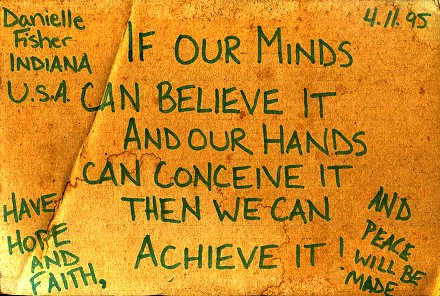 Danielle
Fisher
INDIANA
U.S.A.
4.11.95
IF OUR MINDS
CAN BELIEVE IT
AND OUR HANDS
CAN CONCEIVE IT
THEN WE CAN
ACHIEVE IT !
HAVE
HOPE
AND
FAITH,
AND
PEACE
WILL BE
MADE